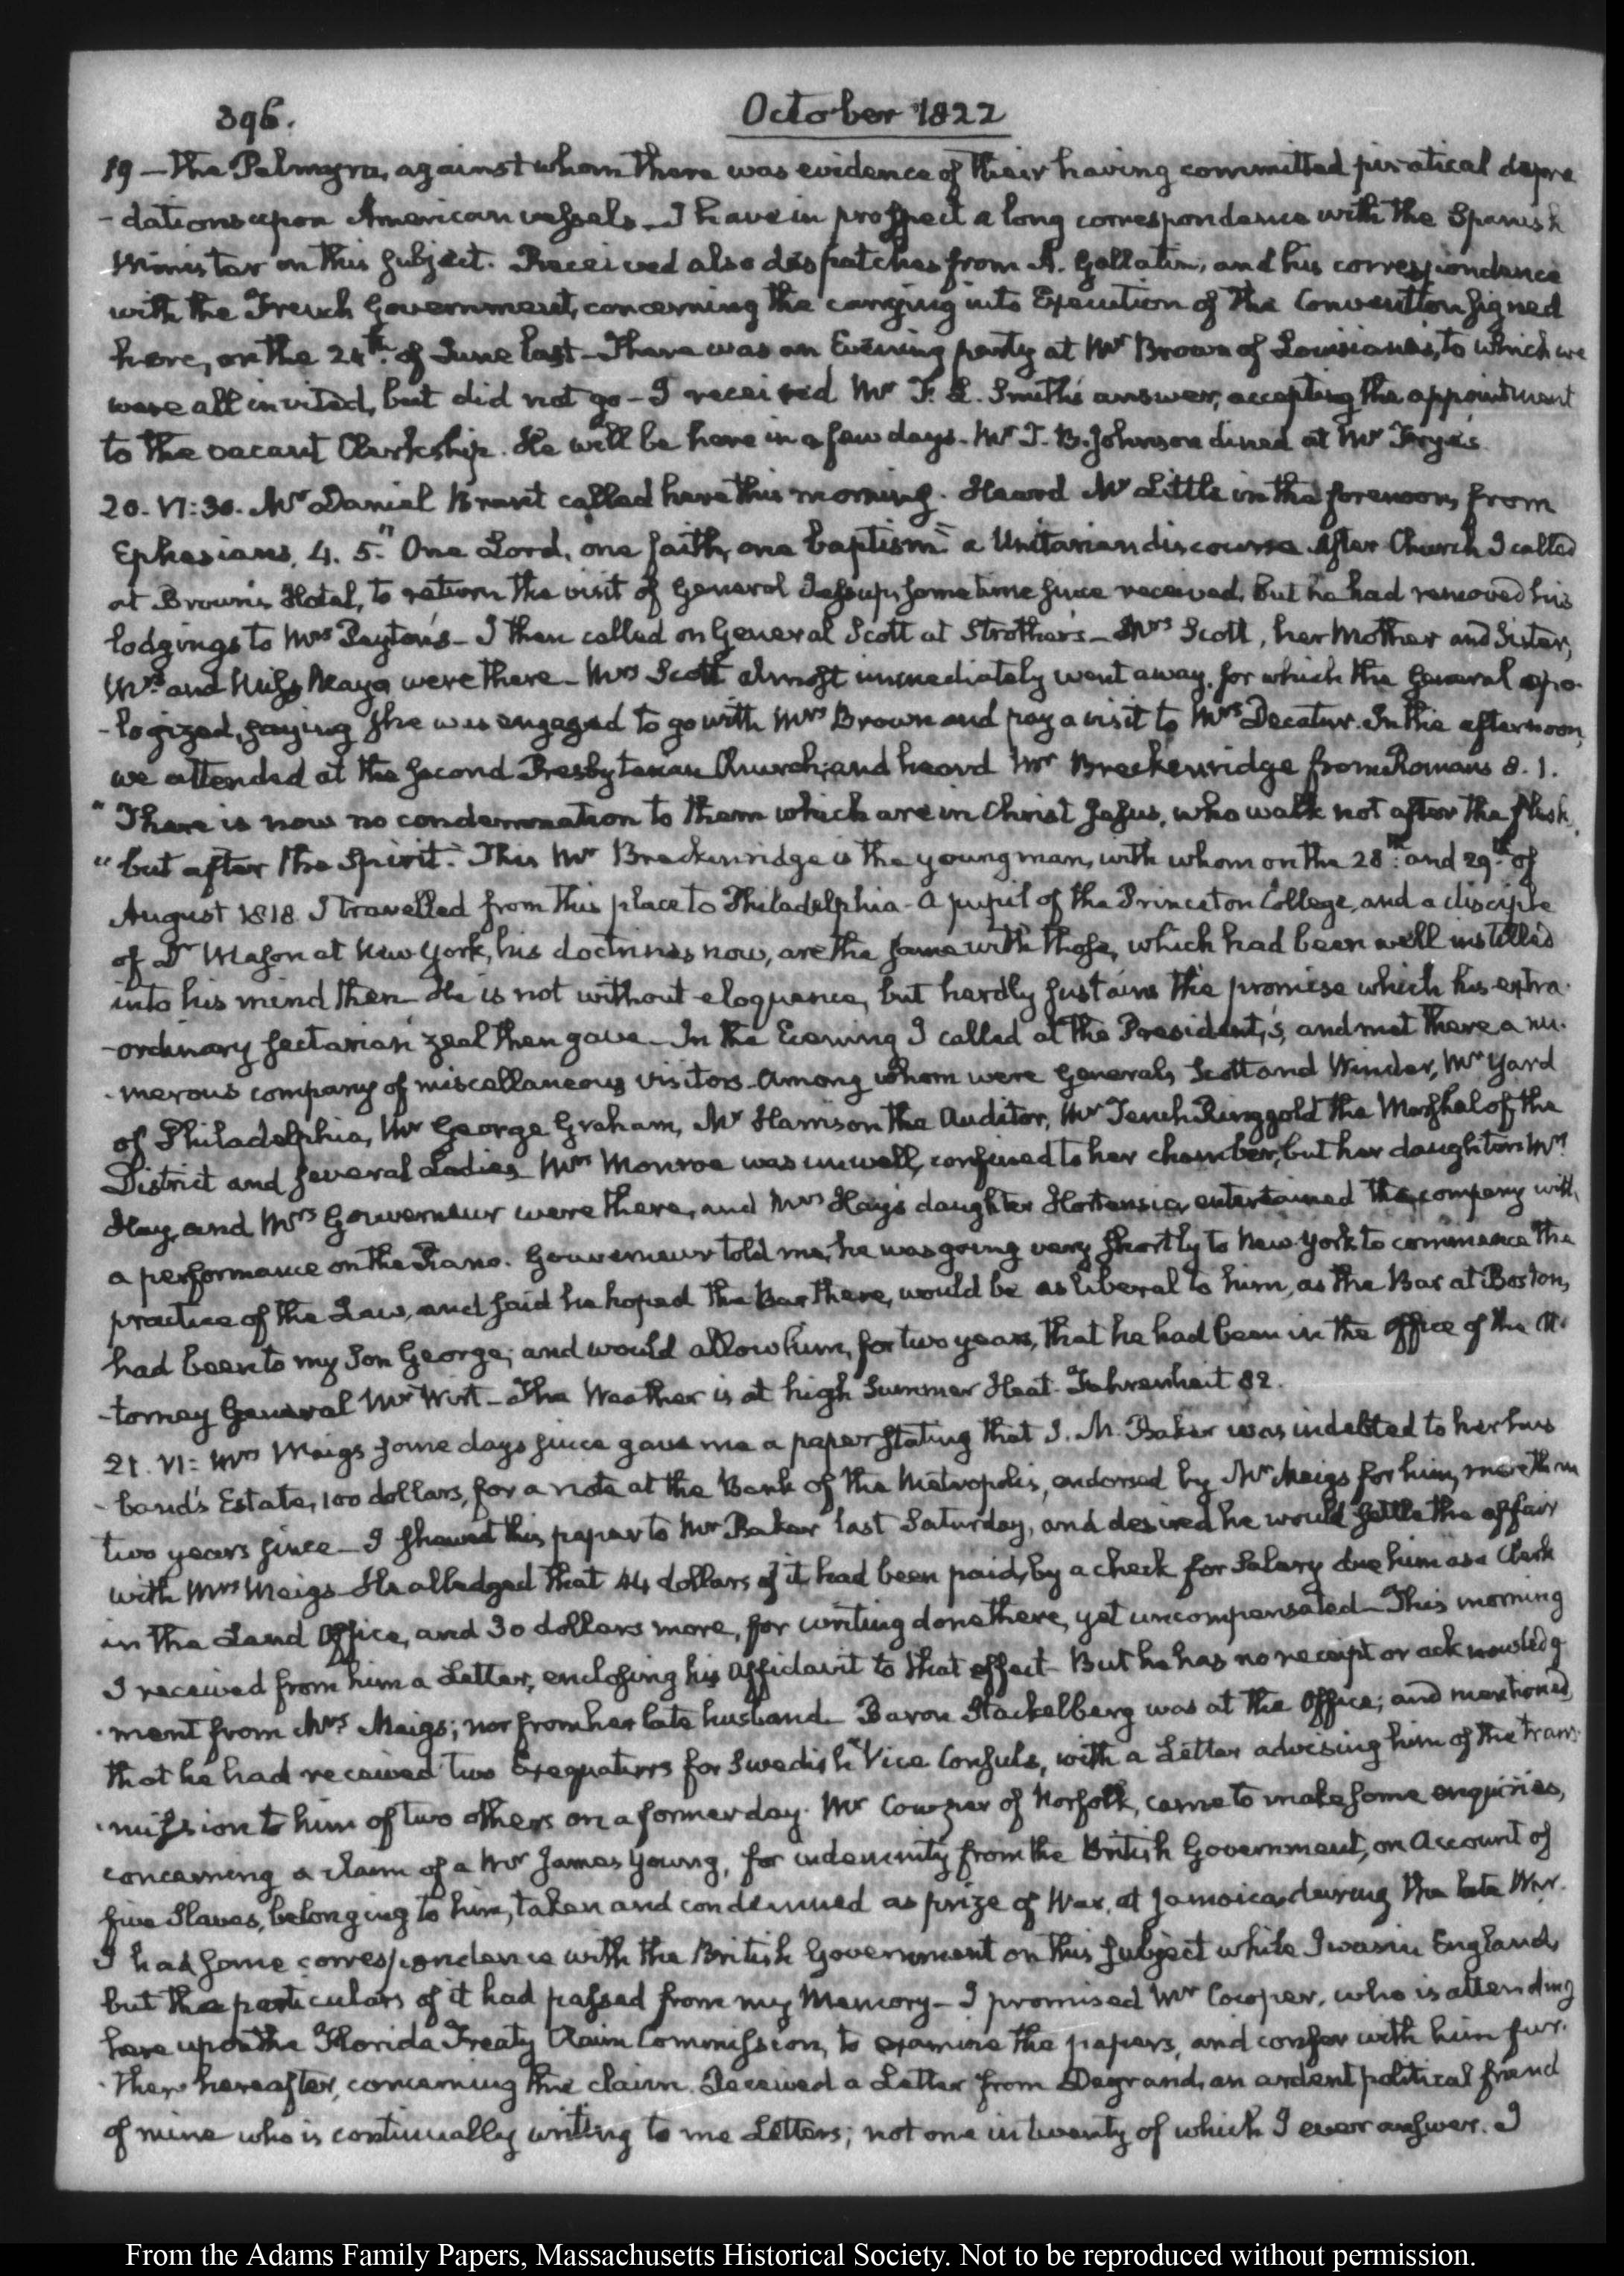 396.
October 1822
19 — the Palmyra, against whom there was evidence of their having committed piratical depre
- dations upon American vessels. I have in prospect a long correspondence with the Spanish
Minister on this subject. Received also despatches from A. Gallatin, and his correspondence
with the French Government, concerning the carrying into Execution of the Convention signed
here, on the 24th. of June last - There was an Evening party at Mr Brown of Louisiana's, to which we
were all invited, but did not go - I received Mr F. L. Smith's answer, accepting the appointment
to the vacant Clerkship. He will be here in a few days. Mr T. B. Johnson dined at Mr Frye's.
20. VI:30. Mr Daniel Brent called here this morning. Heard Mr Little in the forenoon, from
Ephesians, 4. 5. "One Lord, one faith, one baptism" a Unitarian discourse. After Church I called
at Brown's Hotel, to return the visit of General Jessup, sometime since received, but he had removed his
lodgings to Mrs Peyton's - I then called on General Scott at Strother's - Mrs Scott, her Mother and Sister,
Mrs and Miss Mayo were there - Mrs Scott almost immediately went away, for which the General apo-
- logized, saying she was engaged to go with Mrs Brown and pay a visit to Mrs Decatur. In the afternoon,
we attended at the second Presbyterian Church, and heard Mr Breckenridge from Romans 8. 1.
"There is now no condemnation to them which are in Christ Jesus, who walk not after the flesh,
"but after the Spirit." This Mr Breckenridge is the young man, with whom on the 28th: and 29th. of
August 1818 I travelled from this place to Philadelphia - A pupil of the Princeton College, and a disciple
of Dr Mason at New York, his doctrines now, are the same with those, which had been well instilled
into his mind then - He is not without eloquence, but hardly sustains the promise which his extra-
-ordinary sectarian zeal then gave - In the Evening I called at the President's, and met there a nu-
- merous company of miscellaneous visitors - Among whom were Generals Scott and Winder, Mr Yard
of Philadelphia, Mr George Graham, Mr Harrison the Auditor, Mr Tench Ringgold the Marshal of the
District and several Ladies - Mrs Monroe was unwell, confined to her chamber, but her daughters Mrs
Hay, and Mrs Gouverneur were there, and Mrs Hay's daughter Hortensia, entertained the company with
a performance on the Piano. Gouverneur told me, he was going very shortly to New York to commence the
practice of the Law, and said he hoped the Bar there, would be as liberal to him, as the Bar at Boston,
had been to my Son George; and would allow him, for two years, that he had been in the Office of the At-
-torney General Mr Wirt - The Weather is at high Summer Heat. Fahrenheit 82.
21. VI: Mrs Meigs some days since gave me a paper stating that J. M. Baker was indebted to her hus
- band's Estate, 100 dollars, for a note at the Bank of the Metropolis, endorsed by Mr Meigs for him, more than
two years since - I shewed this paper to Mr Baker last Saturday, and desired he would settle the affair
with Mrs Meigs - He alledged that 44 dollars of it had been paid, by a check for Salary due him as a Clerk
in the Land Office, and 30 dollars more, for writing done there, yet uncompensated - This morning
I received from him a Letter, enclosing his Affidavit to that effect - But he has no receipt or acknowledg-
- ment from Mrs Meigs; nor from her late husband. Baron Stackelberg was at the Office; and mentioned
that he had received two Exequaturs for Swedish Vice Consuls, with a Letter advising him of the trans-
- mission to him of two others on a former day. Mr Cowper of Norfolk, came to make some enquiries,
concerning a claim of a Mr James Young, for indemnity from the British Government, on Account of
five Slaves, belonging to him, taken and condemned as prize of War, at Jamaica, during the late War.
I had some correspondence with the British Government on this subject while I was in England,
but the particulars of it had passed from my Memory - I promised Mr Cowper, who is attending
here upon the Florida Treaty Claim Commission, to examine the papers, and confer with him fur-
- ther hereafter, concerning the claim. Received a Letter from Degrand, an ardent political friend
of mine who is continually writing to me Letters; not one in twenty of which I ever answer. I
From the Adams Family Papers, Massachusetts Historical Society. Not to be reproduced without permission.